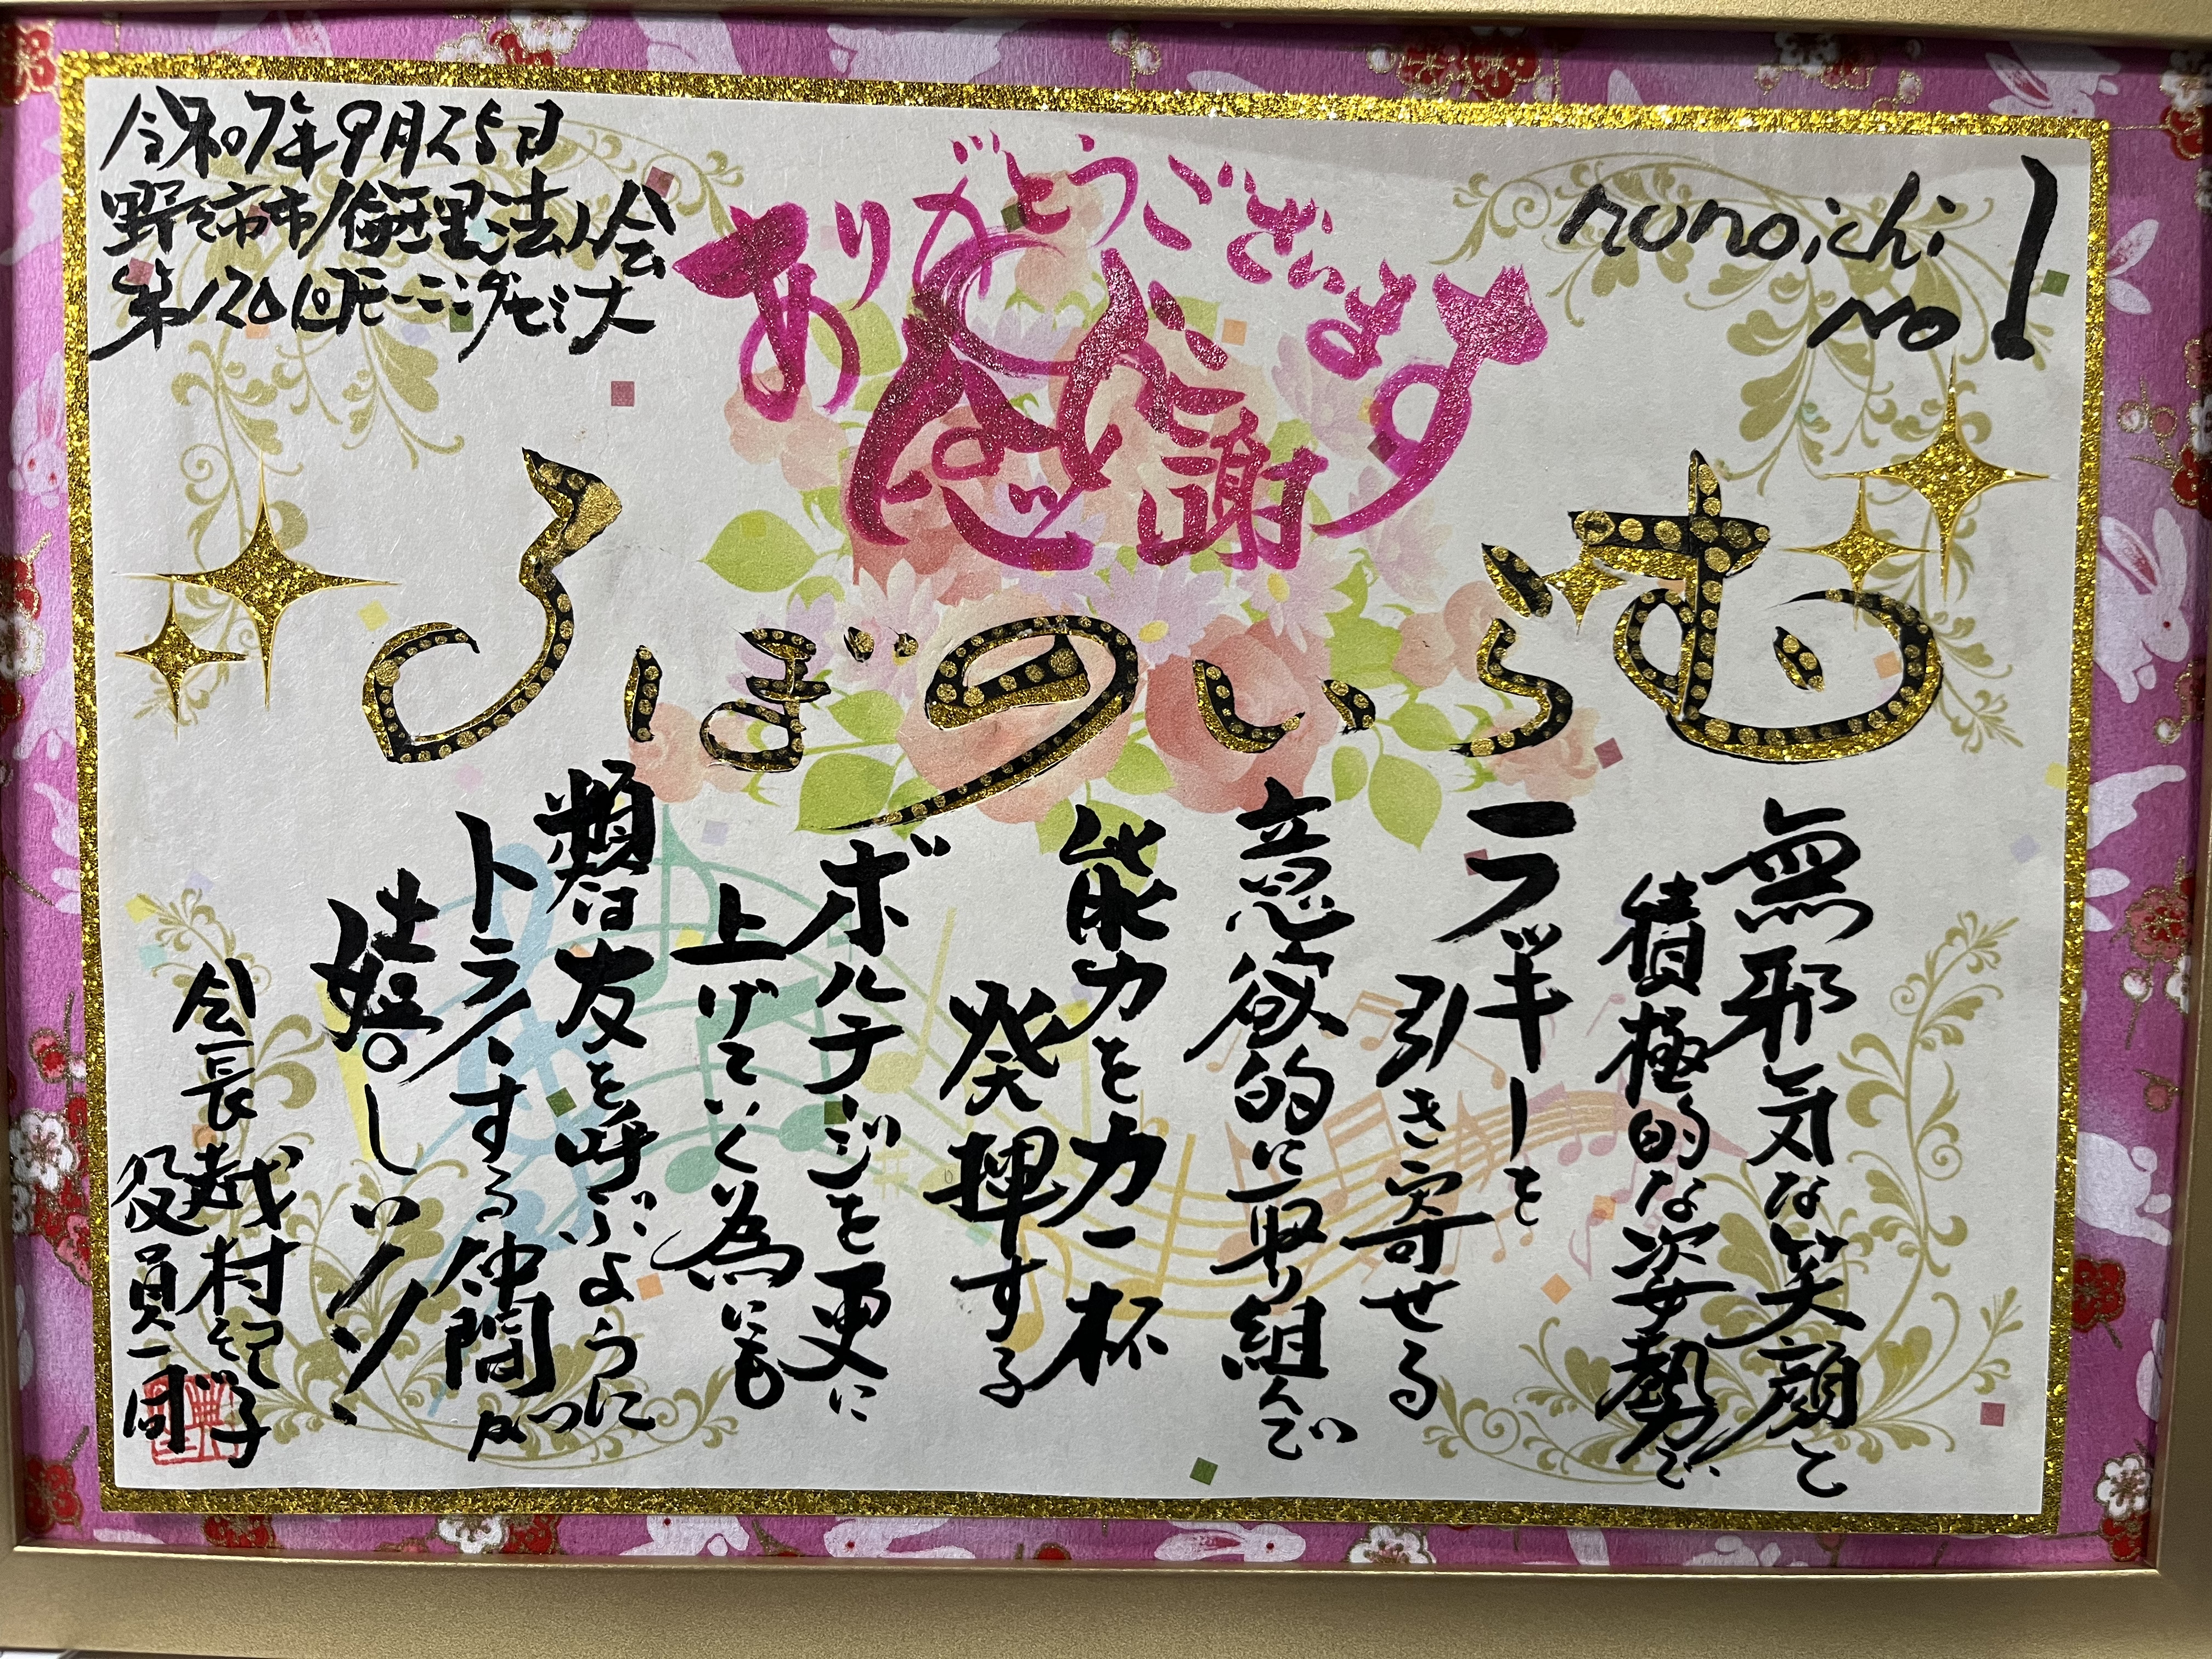 nonoichi
No 1
ありがとうございます
感謝
むらいのぼる
無邪気な笑顔と
積極的な姿勢で
ラッキーを
引き寄せる
意欲的に取り組んで
能力を力一杯
発揮する
ボルテージを更に
上げていく為にも
類は友を呼ぶように
トライする仲間が
嬉しい
令和7年9月25日
野々市市倫理法人会
第1201回モーニングセミナー
会長 越村紀子
役員一同